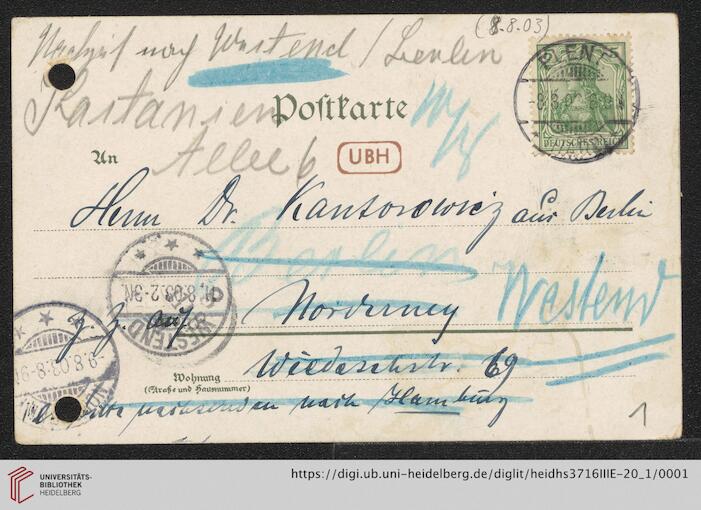 (8.8.03)
nach Westend / Berlin
Kastanien
Allee 6
Postkarte
An
UBH
DEUTSCHES REICH
Herrn Dr. Kantorowicz aus Berlin
Berlin
z. Z. auf Norderney
Westend
WESTEND
Wiedaschstr. 69
Wohnung
(Straße und Hausnummer)
bitte nachsenden nach Hamburg
1
UNIVERSITÄTS-
BIBLIOTHEK
HEIDELBERG
https://digi.ub.uni-heidelberg.de/diglit/heidhs3716IIIE-20_1/0001